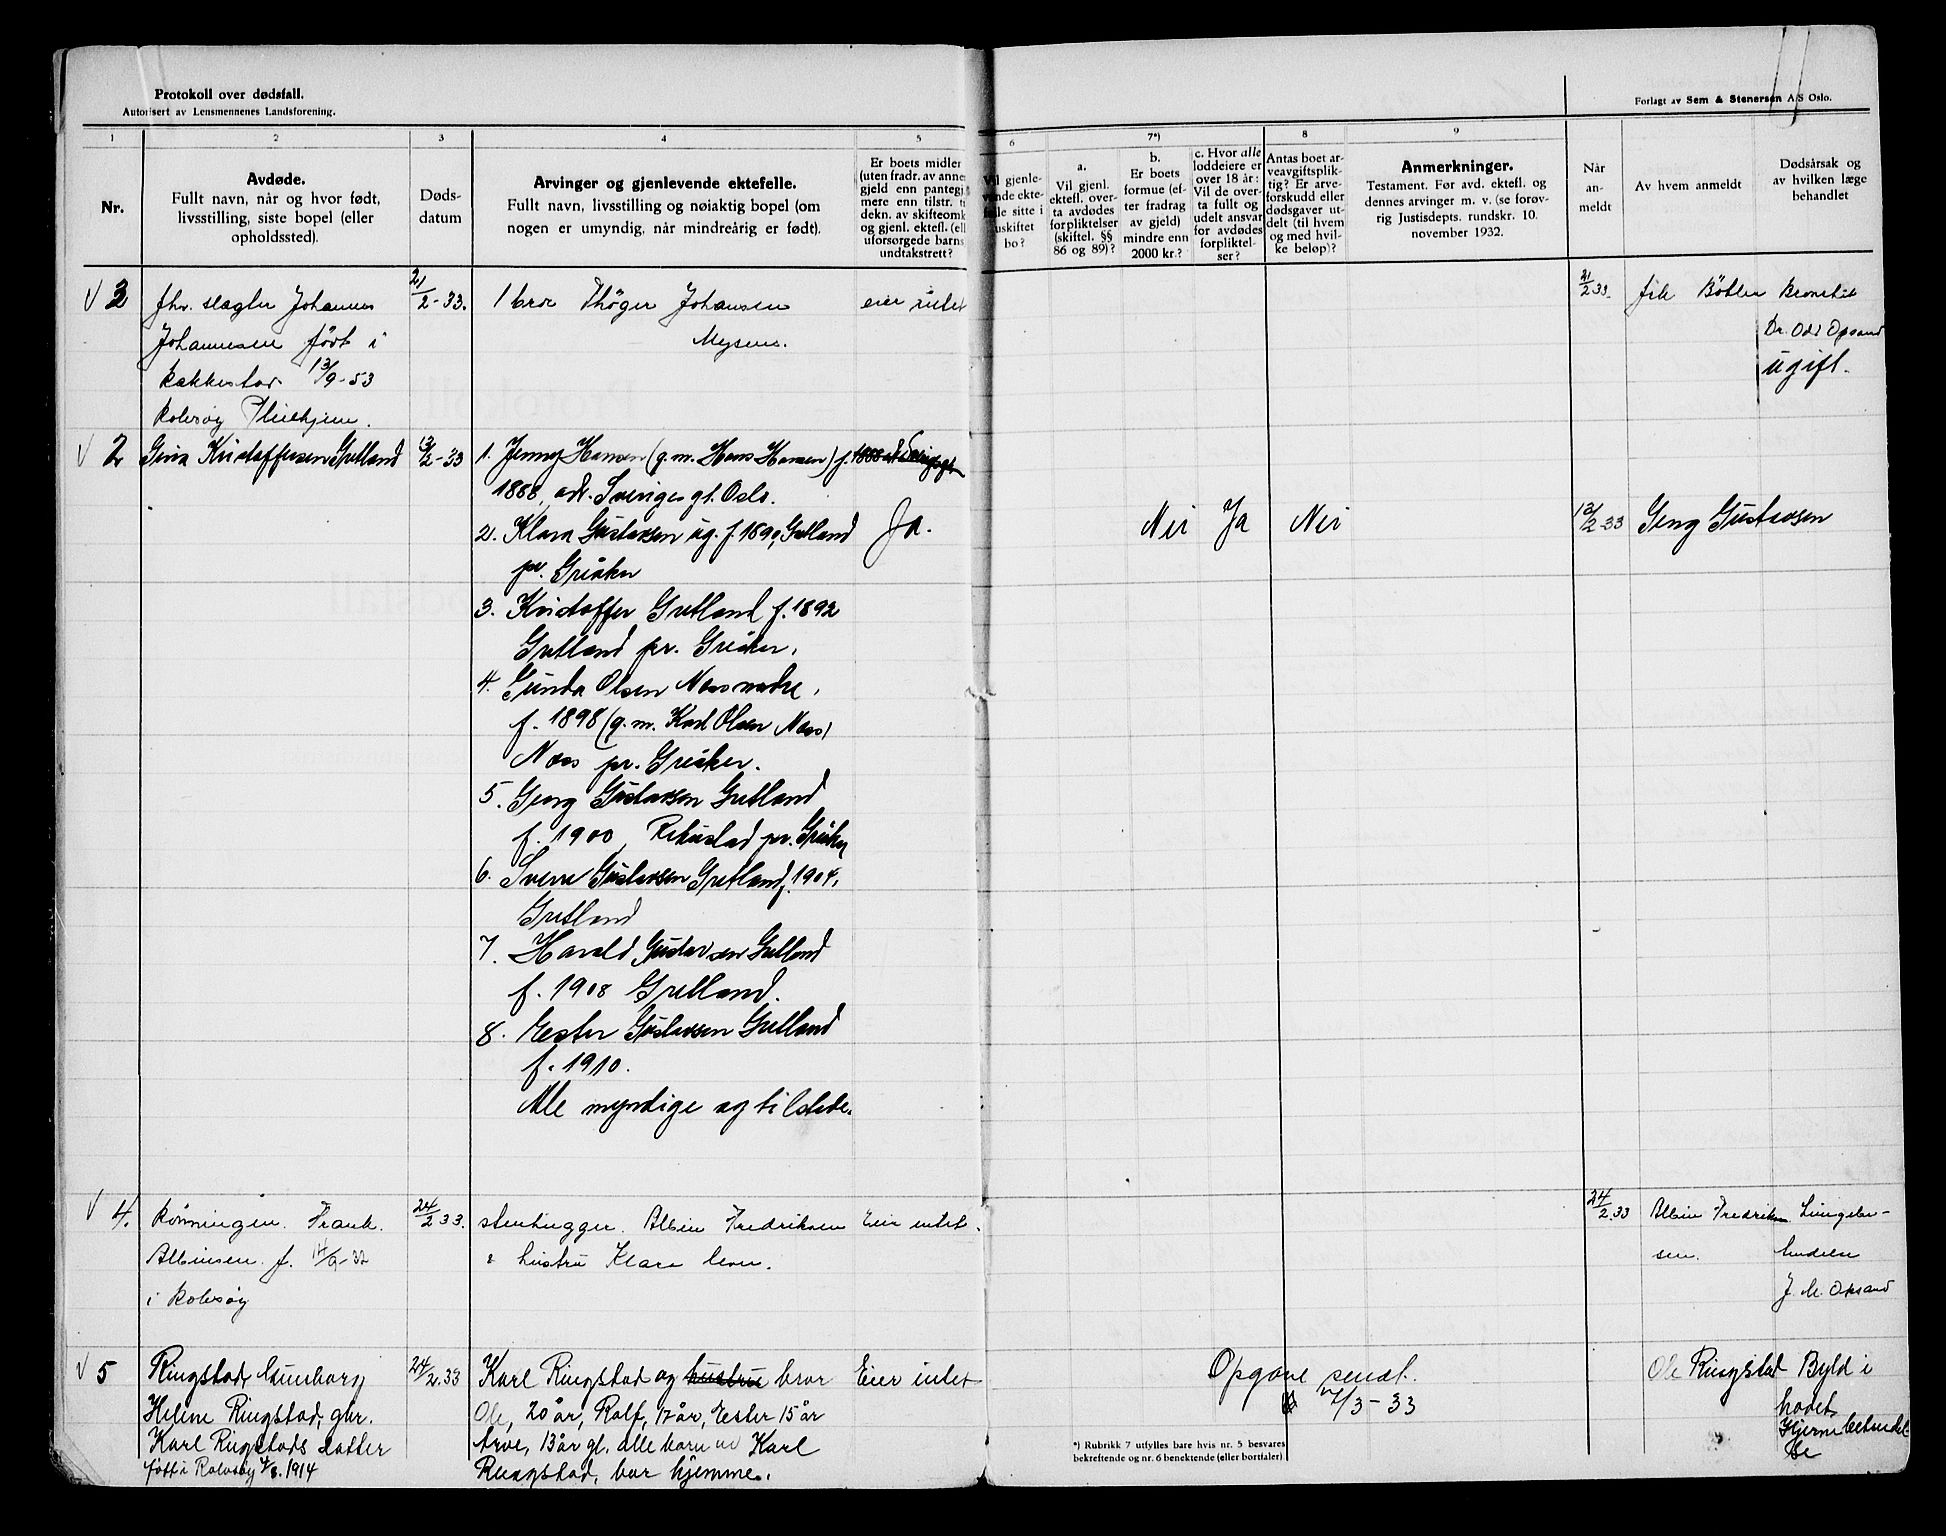 Protokoll over dødsfall.
Autorisert av Lensmennenes Landsforening.
Forlagt av Sem & Stenersen A/S Oslo.
1
2
3
4
5
6
7*)
8
9
Nr.
Avdøde.
Fullt navn, når og hvor født,
livsstilling, siste bopel (eller
opholdssted).
Døds-
datum
Arvinger og gjenlevende ektefelle.
Fullt navn, livsstilling og nøiaktig bopel (om
nogen er umyndig, når mindreårig er født).
Er boets midler
(uten fradr. av annen
gjeld enn pantegj
mere enn tilstr. ti
dekn. av skifteomk
og gjenl. ektefl. (ell
uforsorgede barns
undtakstrett?
Vil gjenle-
vende ekte-
felle sitte i
uskiftet
bo?
a.
Vil gjenl.
ektefl. over-
ta avdødes
forpliktelser
(skiftel. §§
86 og 89)?
b.
Er boets
formue (ef-
ter fradrag
av gjeld)
mindre enn
2000 kr.?
c. Hvor alle
loddeiere er
over 18 år:
Vil de over-
ta fullt og
udelt ansvar
for avdødes
forpliktel-
ser?
Antas boet ar-
veavgiftsplik-
tig? Er arve-
forskudd eller
dødsgaver ut-
delt (til hvem
og med hvil-
ke beløp)?
Anmerkninger.
Testament. Før avd. ektefl. og
dennes arvinger m. v. (se forøv-
rig Justisdepts. rundskr. 10.
november 1932.
Når
an-
meldt
Av hvem anmeldt
Dødsårsak og
av hvilken læge
behandlet
3
fhv. slagter Johannes
Johannesen født i
Rakkestad 13/9-53
Rolvsøy
21/2-33.
1 bror Thøger Johansen
Mysen.
eier intet
21/2 33.
Bronkit
Dr. Odd Opsand
ugift.
2
Gina Kristoffersen Gretland
13/2-33
1. Jenny Hansen (g.m. Hans Hansen) f. 1888
1888, adr. Sveriges gt. Oslo.
2. Klara Gustavsen ug. f. 1890, Gretland
pr. Greåker
3. Kristoffer Gretland f. 1892
Gretland pr. Greåker.
4. Gunda Olsen Næs
f. 1898 (g.m. Karl Olsen Næs)
Næs pr. Greåker.
5. Georg Gustavsen Gretland
f. 1900, Rekustad pr. Greåker
6. Sverre Gustavsen Gretland, f. 1904,
Gretland
7. Harald Gustavsen Gretland
f. 1908 Gretland.
8. Ester Gustavsen Gretland
f. 1910.
Alle myndige og tilstede.
Ja.
Nei Ja Nei
13/2 33 Georg Gustavsen
4.
Rønningen. Frank.
Albinsen. f. 14/9-32
i Rolvsøy
24/2 33.
stenhugger. Albin Fredriksen
& hustru Klara
Eier intet.
24/2.33
Albin Fredrik
sen.
Lungebe-
tendelse
J. M. Opsand
5
Ringstad, Gunborg
Helene Ringstad, gbr.
Karl Ringstads datter
født i Rolvsøy 4/8. 1914
24/2.33
Karl Ringstad og hustru bror
Ole, 20 år, Rolf, 17 år, Ester 15 år
Arve, 13 år gl. alle barn av Karl
Ringstad, bor hjemme.
Eier intet
Opgave sendt.
4/3-33
Ole Ringstad
Byld i
hodet
Hjernebetendel-
se
*) Rubrikk 7 utfylles bare hvis nr. 5 besvares
bekreftende og nr. 6 benektende (eller bortfaler)